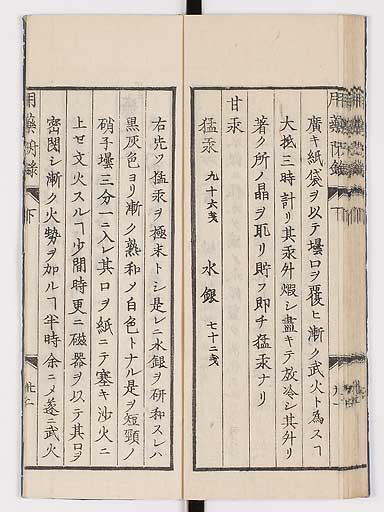 廣キ紙袋ヲ以テ壜口ヲ覆ヒ漸ク武火ト為スヿ
大抵三時計リ其汞外煆シ盡キテ放冷シ其外リ
著ク所ノ晶ヲ取リ貯フ即チ猛汞ナリ
甘汞
猛汞 九十六戔 水銀 七十二戔
右先ツ猛汞ヲ極末トシ是レニ水銀ヲ研和スレハ
黒灰色ヨリ漸ク熟和メ白色トナル是ヲ短頸ノ
硝子壜三分一ニ入レ其口ヲ紙ニテ塞キ沙火ニ
上セ文火スルヿ少間時更ニ磁器ヲ以テ其口ヲ
密閉シ漸ク火勢ヲ加ルヿ半時余ニメ遂ニ武火
用藥
下